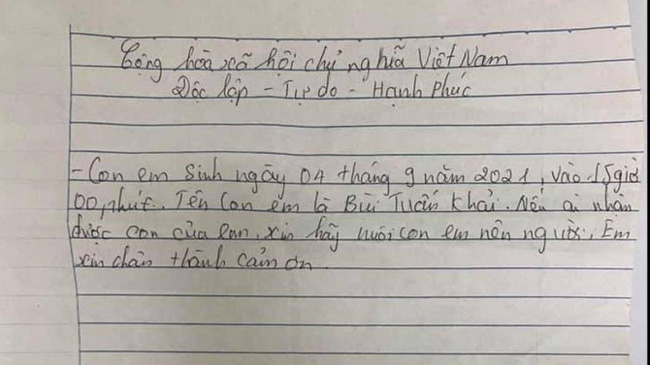 Cộng hoà xã hội chủ nghĩa Việt Nam
Độc lập - Tự do - Hạnh Phúc
- Con em sinh ngày 04 tháng 9 năm 2021, vào 15 giờ
00, phút. Tên con em là Bùi Tuấn Khải. Nếu ai nhận
được con của em, xin hãy nuôi con em nên người. Em
xin chân thành cảm ơn.